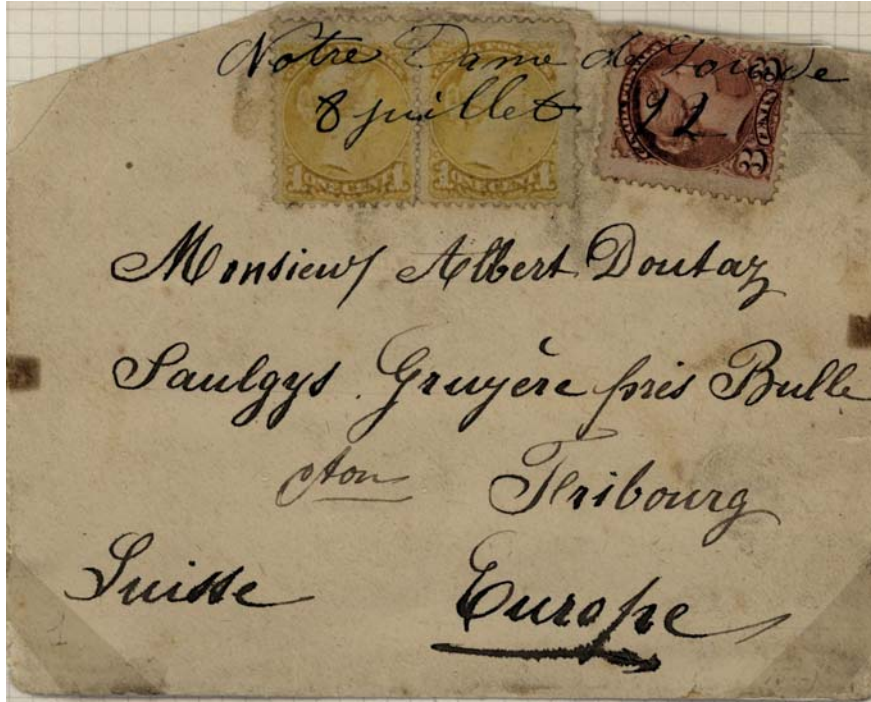 Notre Dame de Lourde
8 juillet 92
1 ONE CENT 1
1 ONE CENT 1
3 CENTS
Monsieur Albert Doutaz
Saulgys Gruyère près Bulle
cton Fribourg
Suisse Europe